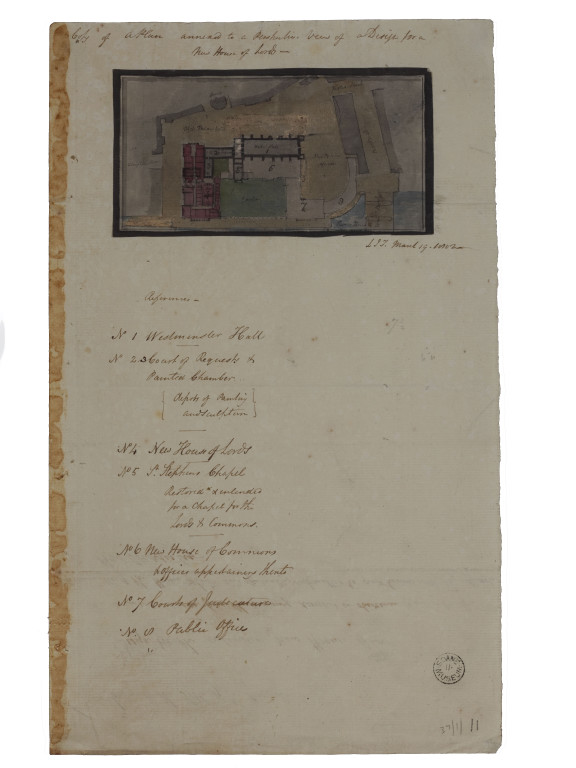 Copy of a Plan annexed to a Perspective View of a Design for a
New House of Lords —
L.I.F. March 19
References —
No 1 Westminster Hall
No 2.3 Court of Requests &
Painted Chamber
Depots of Painting
and sculpture
No 4 New House of Lords
No 5 St. Stephens Chapel
Restored & intended
for a Chapel for the
Lords & Commons.
No 6 New House of Commons
& offices appertaining thereto
No. 7 Courts of Judicature
No. 8 Public Office
SOANE
MUSEUM
37/1/11